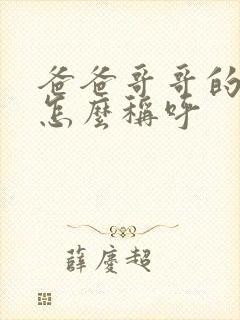 爸爸哥哥的
怎麼稱呼
薛慶超